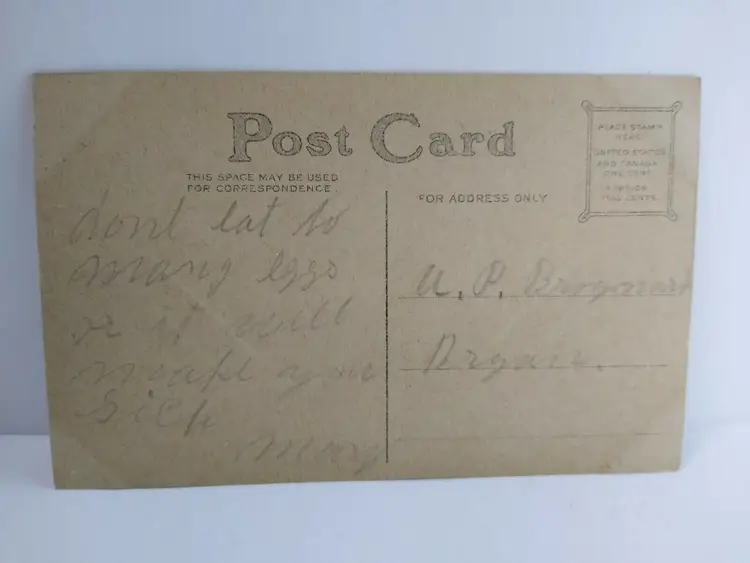 Post Card
THIS SPACE MAY BE USED
FOR CORRESPONDENCE.
FOR ADDRESS ONLY
PLACE STAMP
HERE
UNITED STATES
AND CANADA
ONE CENT
FOREIGN
TWO CENTS
dont eat to
many eggs
or it will
make you
Sick
mary
U. P.